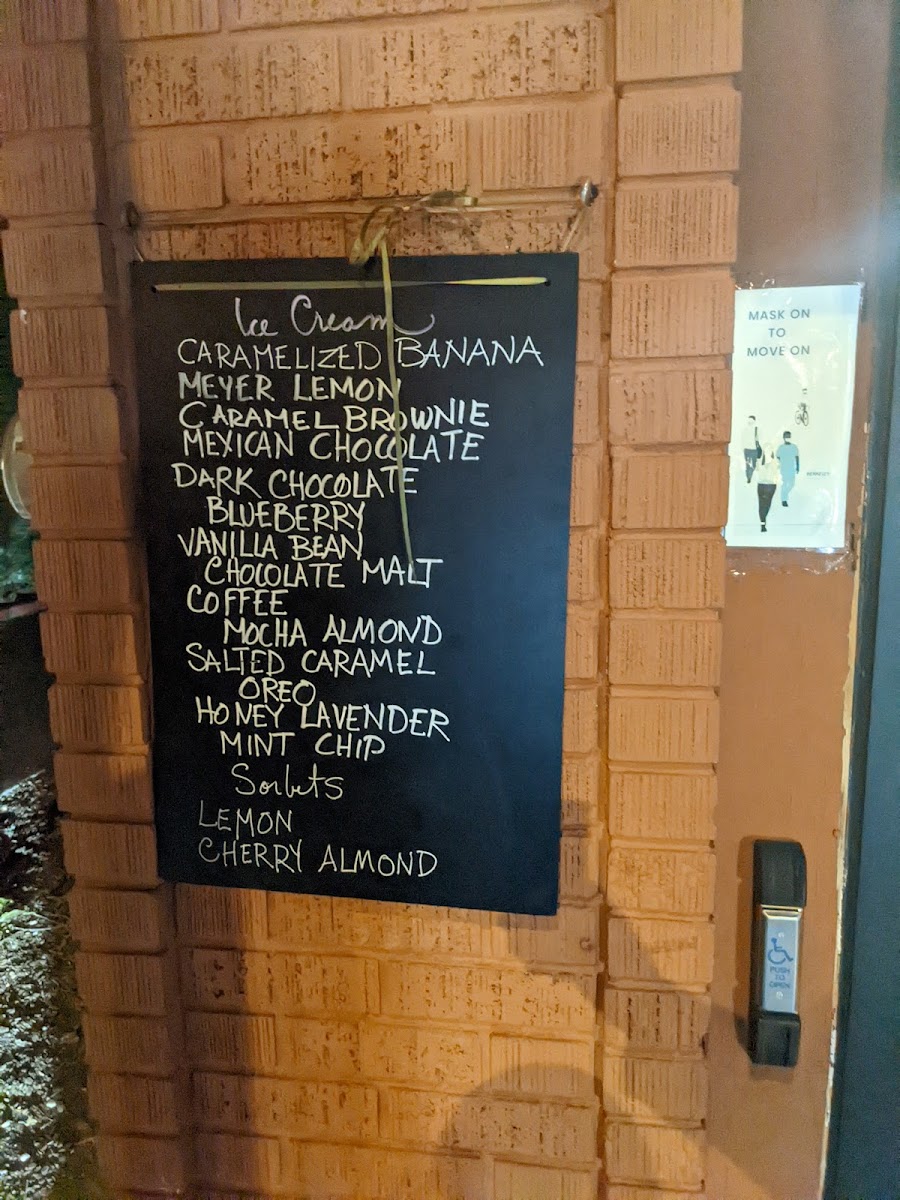 Ice Cream
CARAMELIZED BANANA
MEYER LEMON
CARAMEL BROWNIE
MEXICAN CHOCOLATE
DARK CHOCOLATE
BLUEBERRY
VANILLA BEAN
CHOCOLATE MALT
COFFEE
MOCHA ALMOND
SALTED CARAMEL
OREO
HONEY LAVENDER
MINT CHIP
Sorbets
LEMON
CHERRY ALMOND
MASK ON
TO
MOVE ON
PUSH
TO
OPEN